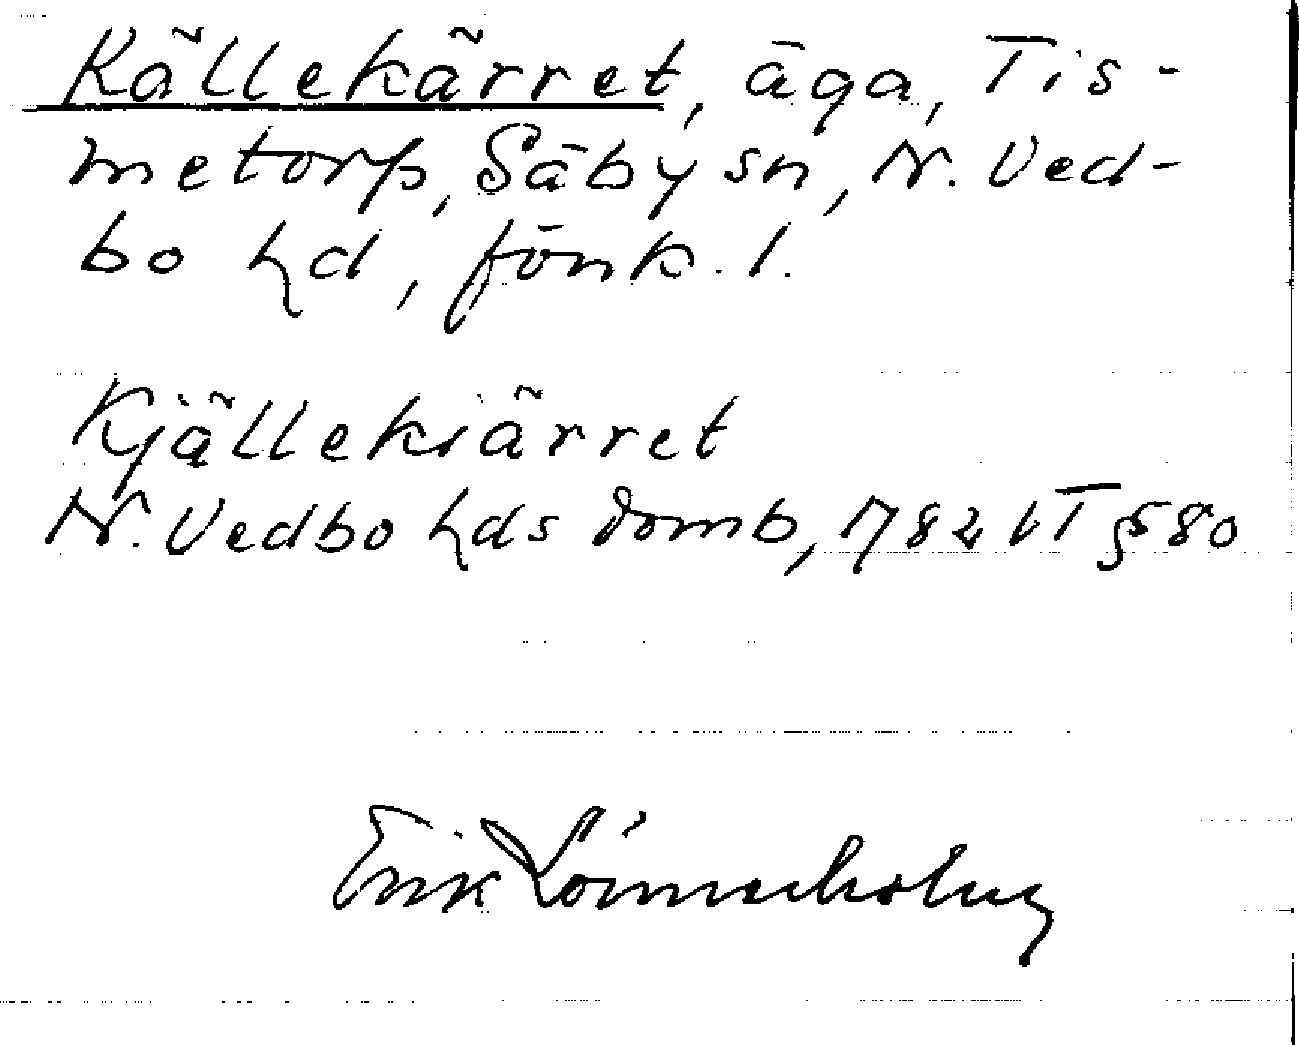 Källekärret, äga, Tis-
metorp, Säby sn, N. Ved-
bo hd, Jönk. l.
Kjällekiärret
N. Vedbo hds domb, 1782 VT § 80
Erik